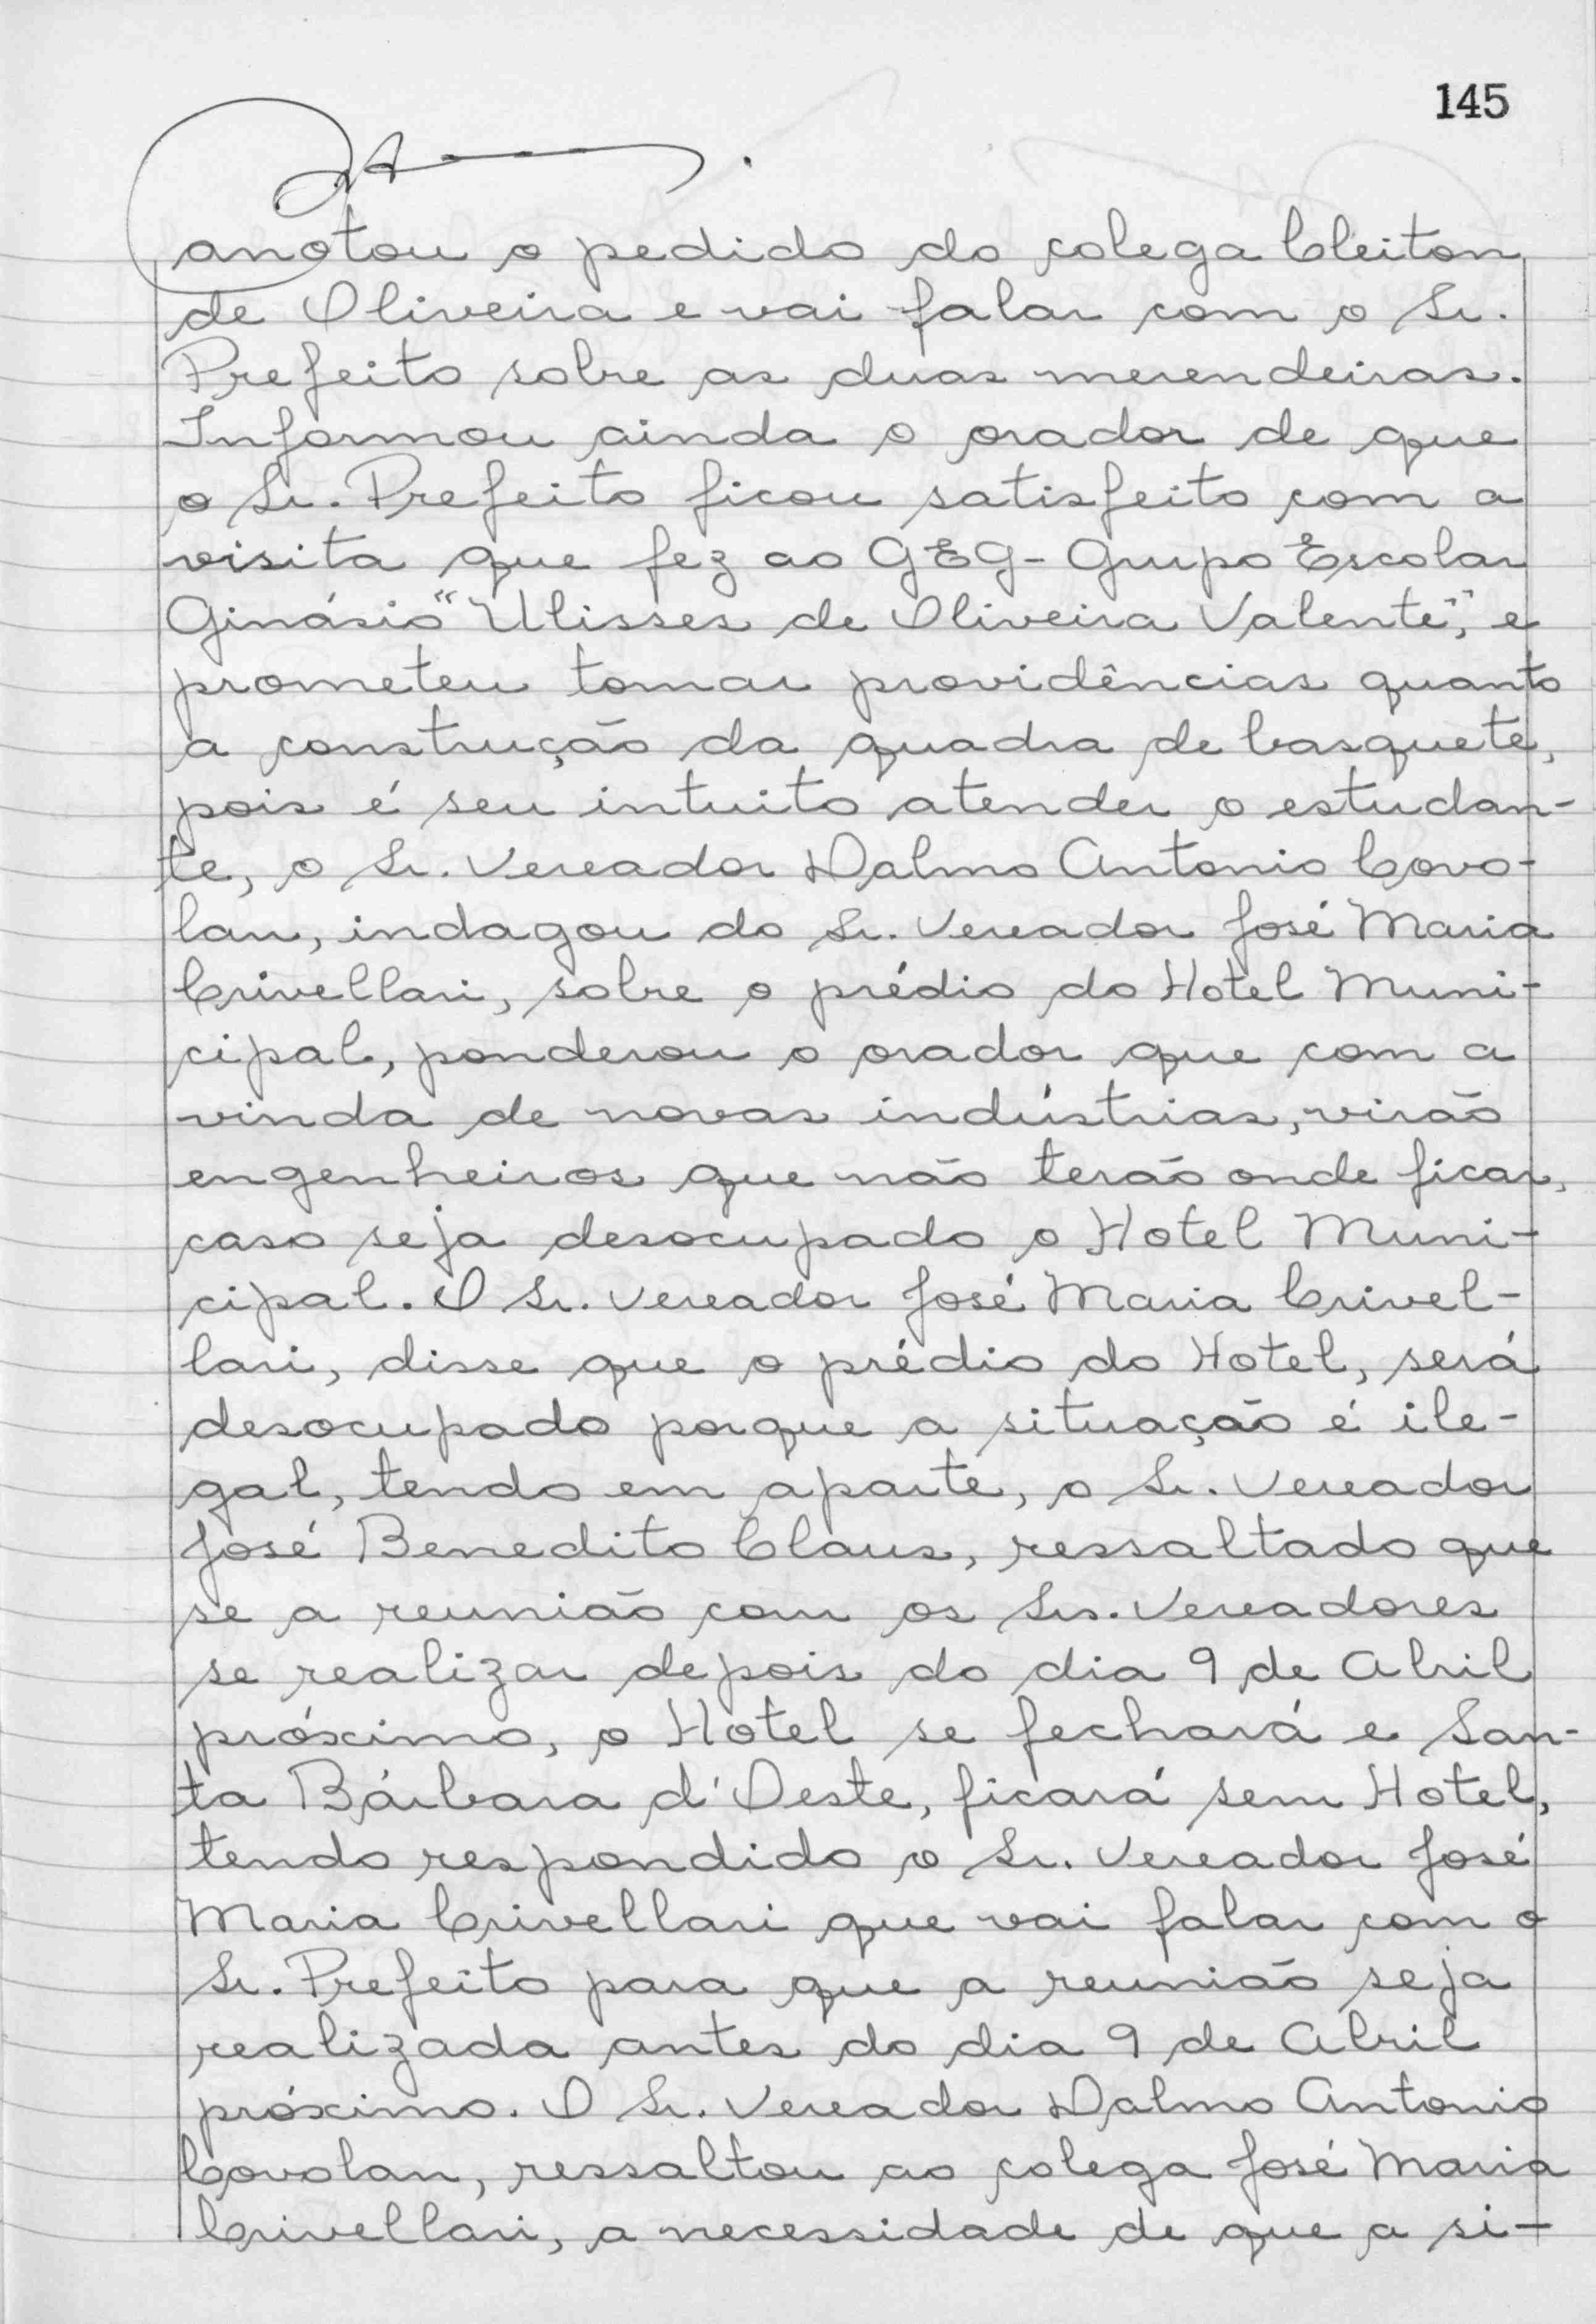 145
anotou o pedido do colega Cleiton
de Oliveira e vai falar com o Sr.
Prefeito sobre as duas merendeiras.
Informou ainda o orador de que
o Sr. Prefeito ficou satisfeito com a
visita que fez ao GEG - Grupo Escolar
Ginásio "Ulisses de Oliveira Valente", e
prometeu tomar providências quanto
a construção da quadra de basquete,
pois é seu intuito atender o estudan-
te, o Sr. Vereador Dalmo Antonio Covo-
lan, indagou do Sr. Vereador José Maria
Crivellari, sobre o prédio do Hotel Muni-
cipal, ponderou o orador que com a
vinda de novas indústrias, virão
engenheiros que não terão onde ficar,
caso seja desocupado o Hotel Muni-
cipal. O Sr. Vereador José Maria Crivel-
lari, disse que o prédio do Hotel, será
desocupado porque a situação é ile-
gal, tendo em aparte, o Sr. Vereador
José Benedito Claus, ressaltado que
se a reunião com os Srs. Vereadores
se realizar depois do dia 9 de Abril
próximo, o Hotel se fechará e San-
ta Bárbara d'Oeste, ficará sem Hotel,
tendo respondido o Sr. Vereador José
Maria Crivellari que vai falar com o
Sr. Prefeito para que a reunião seja
realizada antes do dia 9 de Abril
próximo. O Sr. Vereador Dalmo Antonio
Covolan, ressaltou ao colega José Maria
Crivellari, a necessidade de que a si-